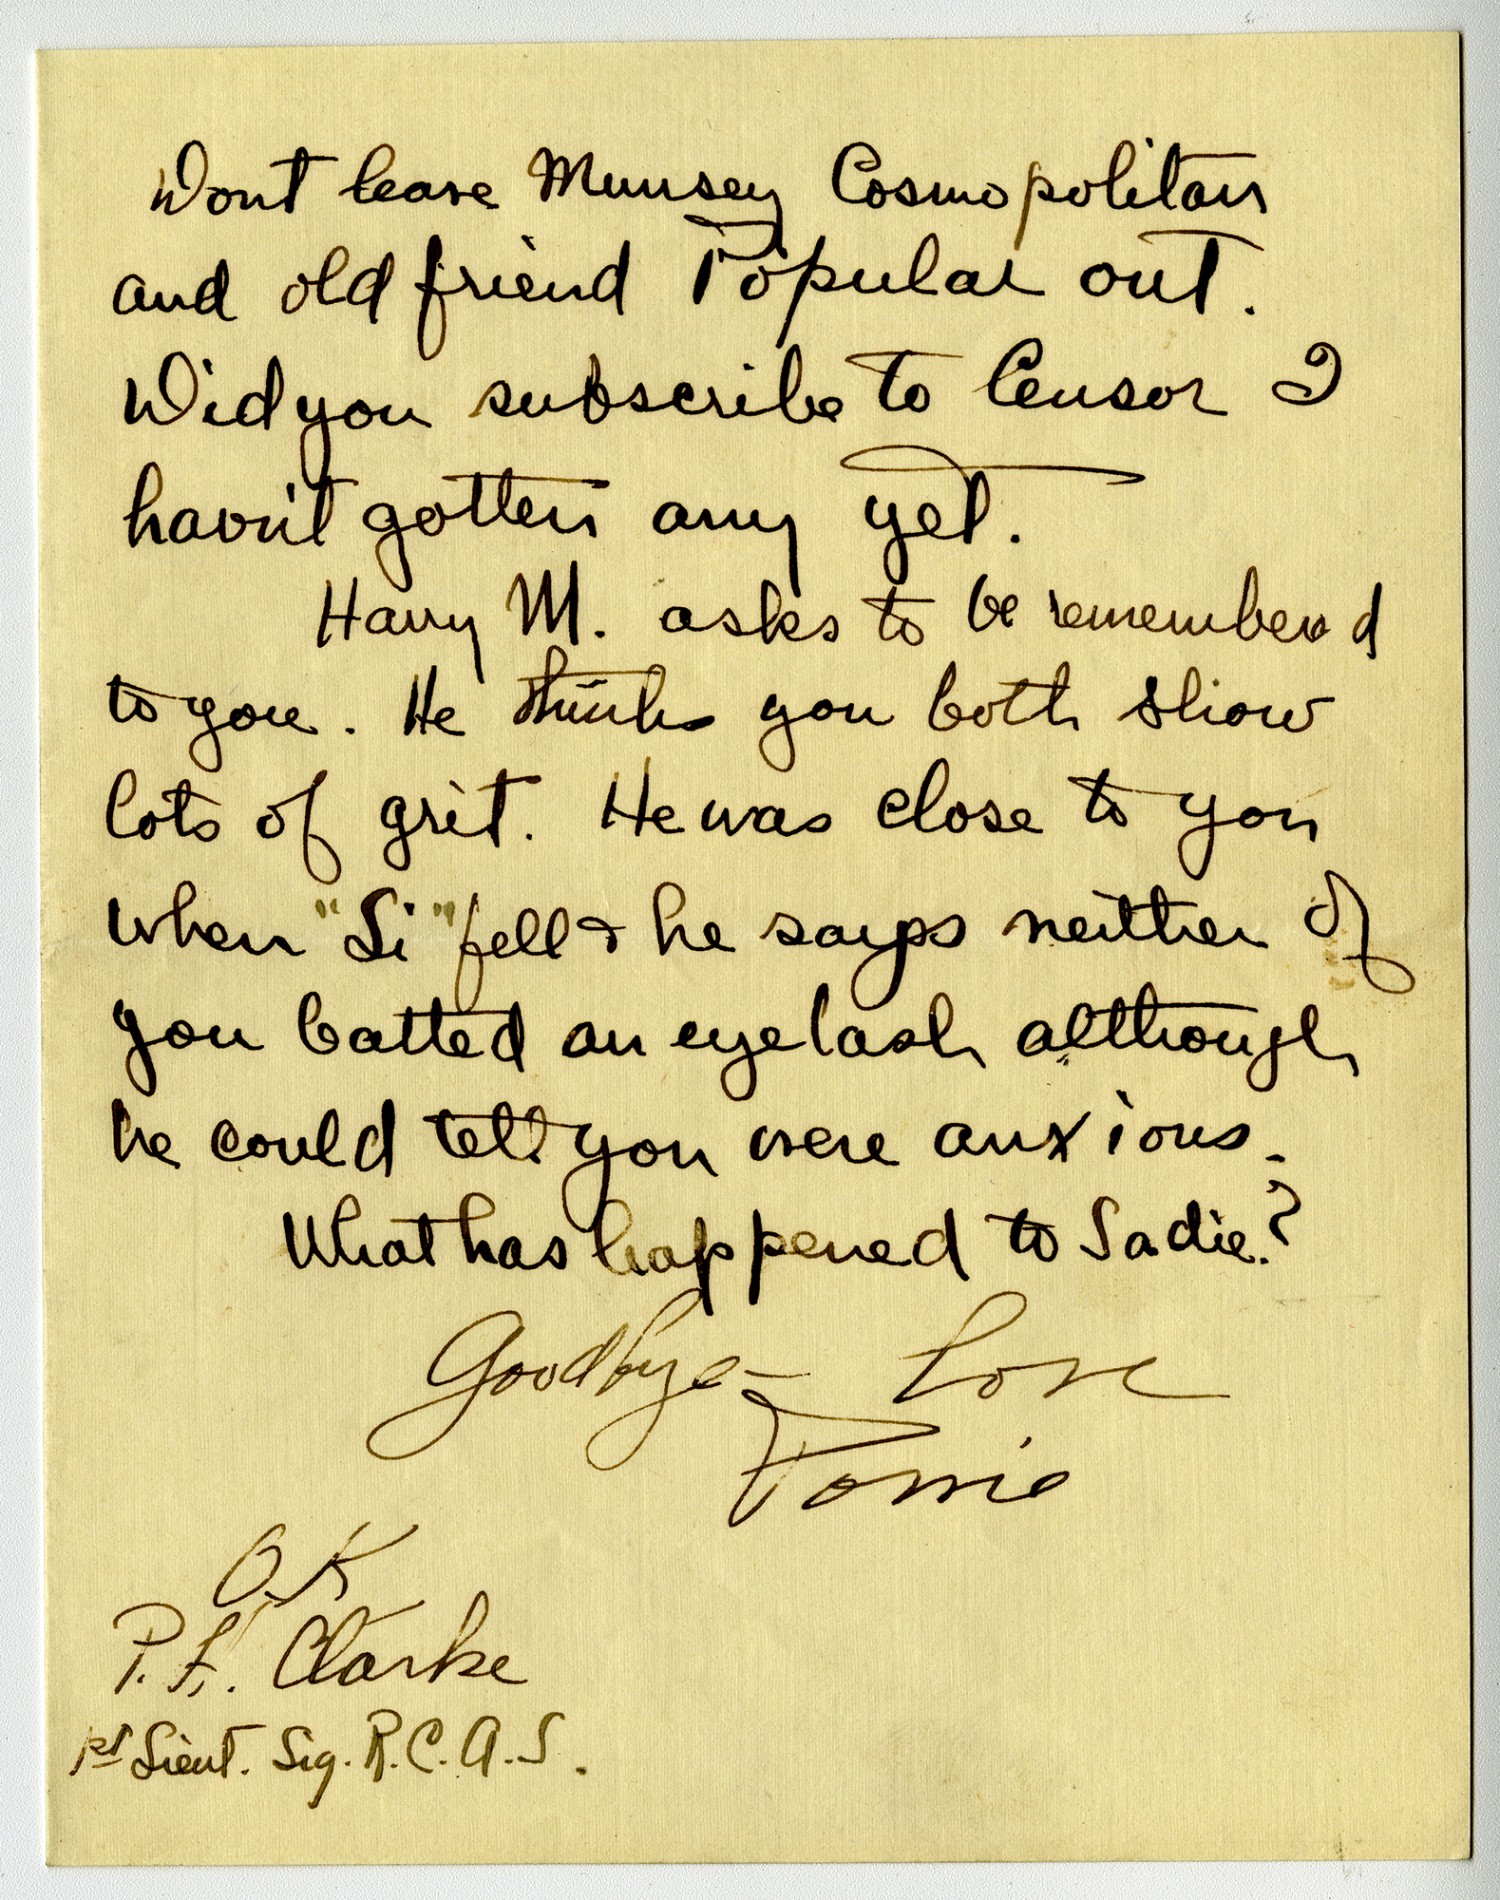 Dont leave Munsey Cosmopolitan
and old friend Popular out.
Did you subscribe to Censor I
havn't gotten any yet.
Harry M. asks to be rememberd
to you. He thinks you both show
lots of grit. He was close to you
when "Si" fell & he says neither of
you batted an eyelash although
he could tell you were anxious.
What has happened to Sadie?
Goodbye - Love
O.K
P.F. Clarke
1st Lieut. Sig. R.C. A.S.